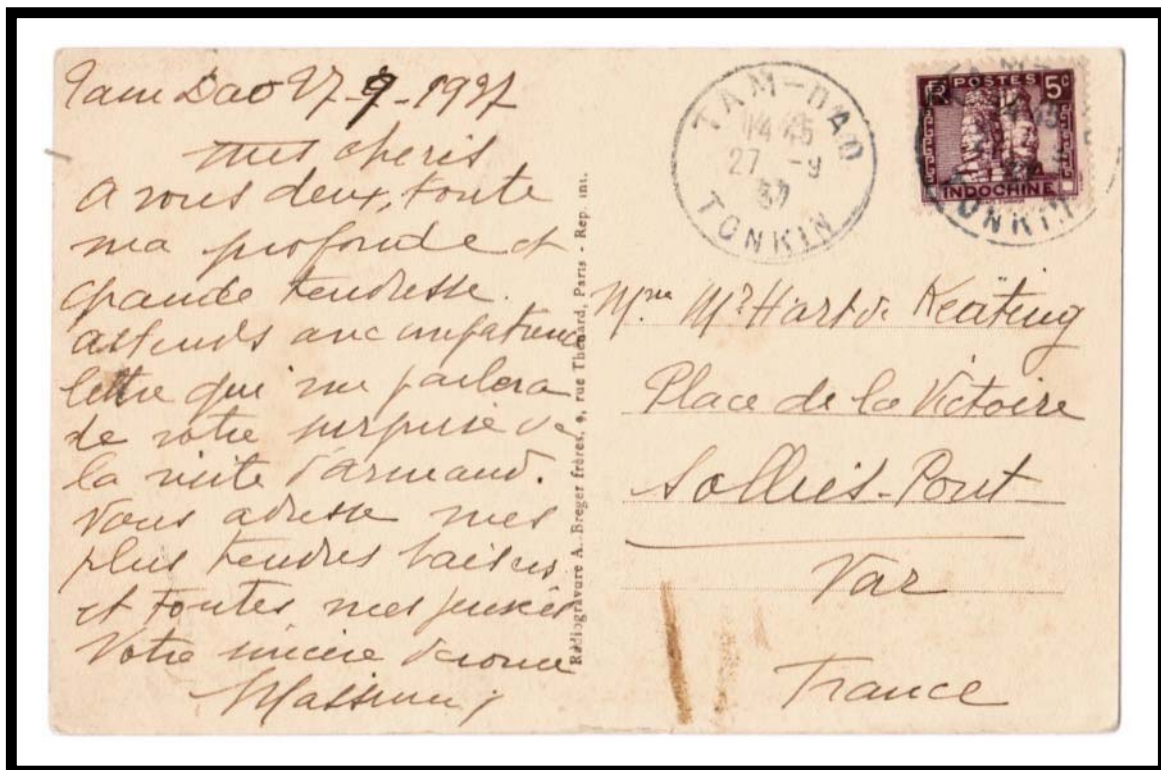 Tam Dao 27-9-1937
mes cheris
a vous deux, toute
ma profonde et
grande tendresse.
attends avec impatience
lettre qui me parlera
de votre surprise de
la visite d'armand.
Vous adresse mes
plus tendres baisers
et toutes mes pensées
Votre sincère
Radiogravure A. Breger frères, 9, rue Thénard, Paris - Rep. int.
TAM-DAO
14 45
27 -9
37
TONKIN
RF POSTES 5c
INDOCHINE
TONKIN
Mme Mr Hart de Keating
Place de la Victoire
Solliès-Pont
Var
France